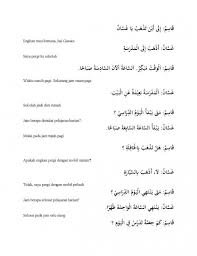 قَاسِمٌ: إِلَى أَيْنَ تَذْهَبُ يَا غَسَّانُ؟
Engkau mau kemana, hai Gassan
غَسَّانُ: أَذْهَبُ إِلَى الْمَدْرَسَةِ
Saya pergi ke sekolah
قَاسِمٌ: الْوَقْتُ مُبَكِّرٌ، السَّاعَةُ الْآنَ السَّادِسَةُ صَبَاحًا.
Waktu masih pagi. Sekarang jam enam pagi.
غَسَّانُ: الْمَدْرَسَةُ بَعِيدَةٌ عَنِ الْبَيْتِ.
Sekolah jauh dari rumah
قَاسِمٌ: مَتَى الْيَوْمُ الدِّرَاسِيُّ ؟
Jam berapa dimulai pelajaran harian?
غَسَّانُ: السَّاعَةَ السَّابِعَةَ صَبَاحًا.
Mulai pada jam tujuh pagi
قَاسِمٌ: هَلْ تَذْهَبُ بِالْحَافِلَةِ ؟
Apakah engkau pergi dengan mobil umum?
غَسَّانُ: لَا، بِالسَّيَّارَةِ
Tidak, saya pergi dengan mobil pribadi
قَاسِمٌ: مَتَى يَنْتَهِي الْيَوْمُ الدِّرَاسِيُّ ؟
Jam berapa selesai pelajaran harian?
غَسَّانُ: يَنْتَهِي السَّاعَةَ الْوَاحِدَةَ ظُهْرًا.
Selesai pada jam satu siang
قَاسِمٌ: كَمْ حِصَّةً تَدْرُسُ فِي الْيَوْمِ ؟